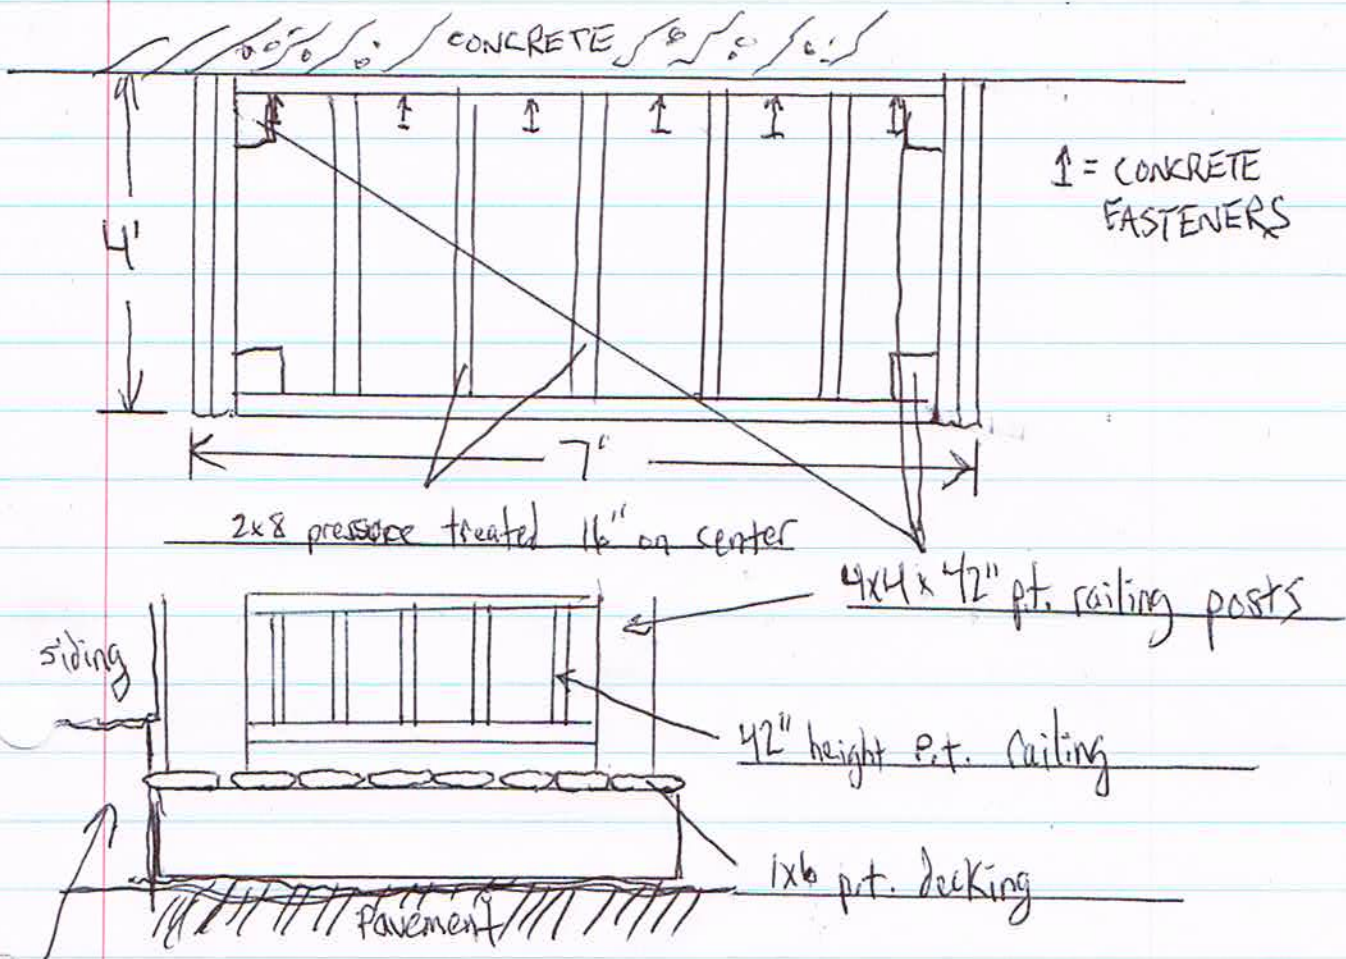 CONCRETE
4'
↥ = CONCRETE
FASTENERS
7'
2x8 pressure treated 16" on center
4x4 x 42" p.t. railing posts
siding
42" height P.t. railing
1x6 p.t. decking
Pavement